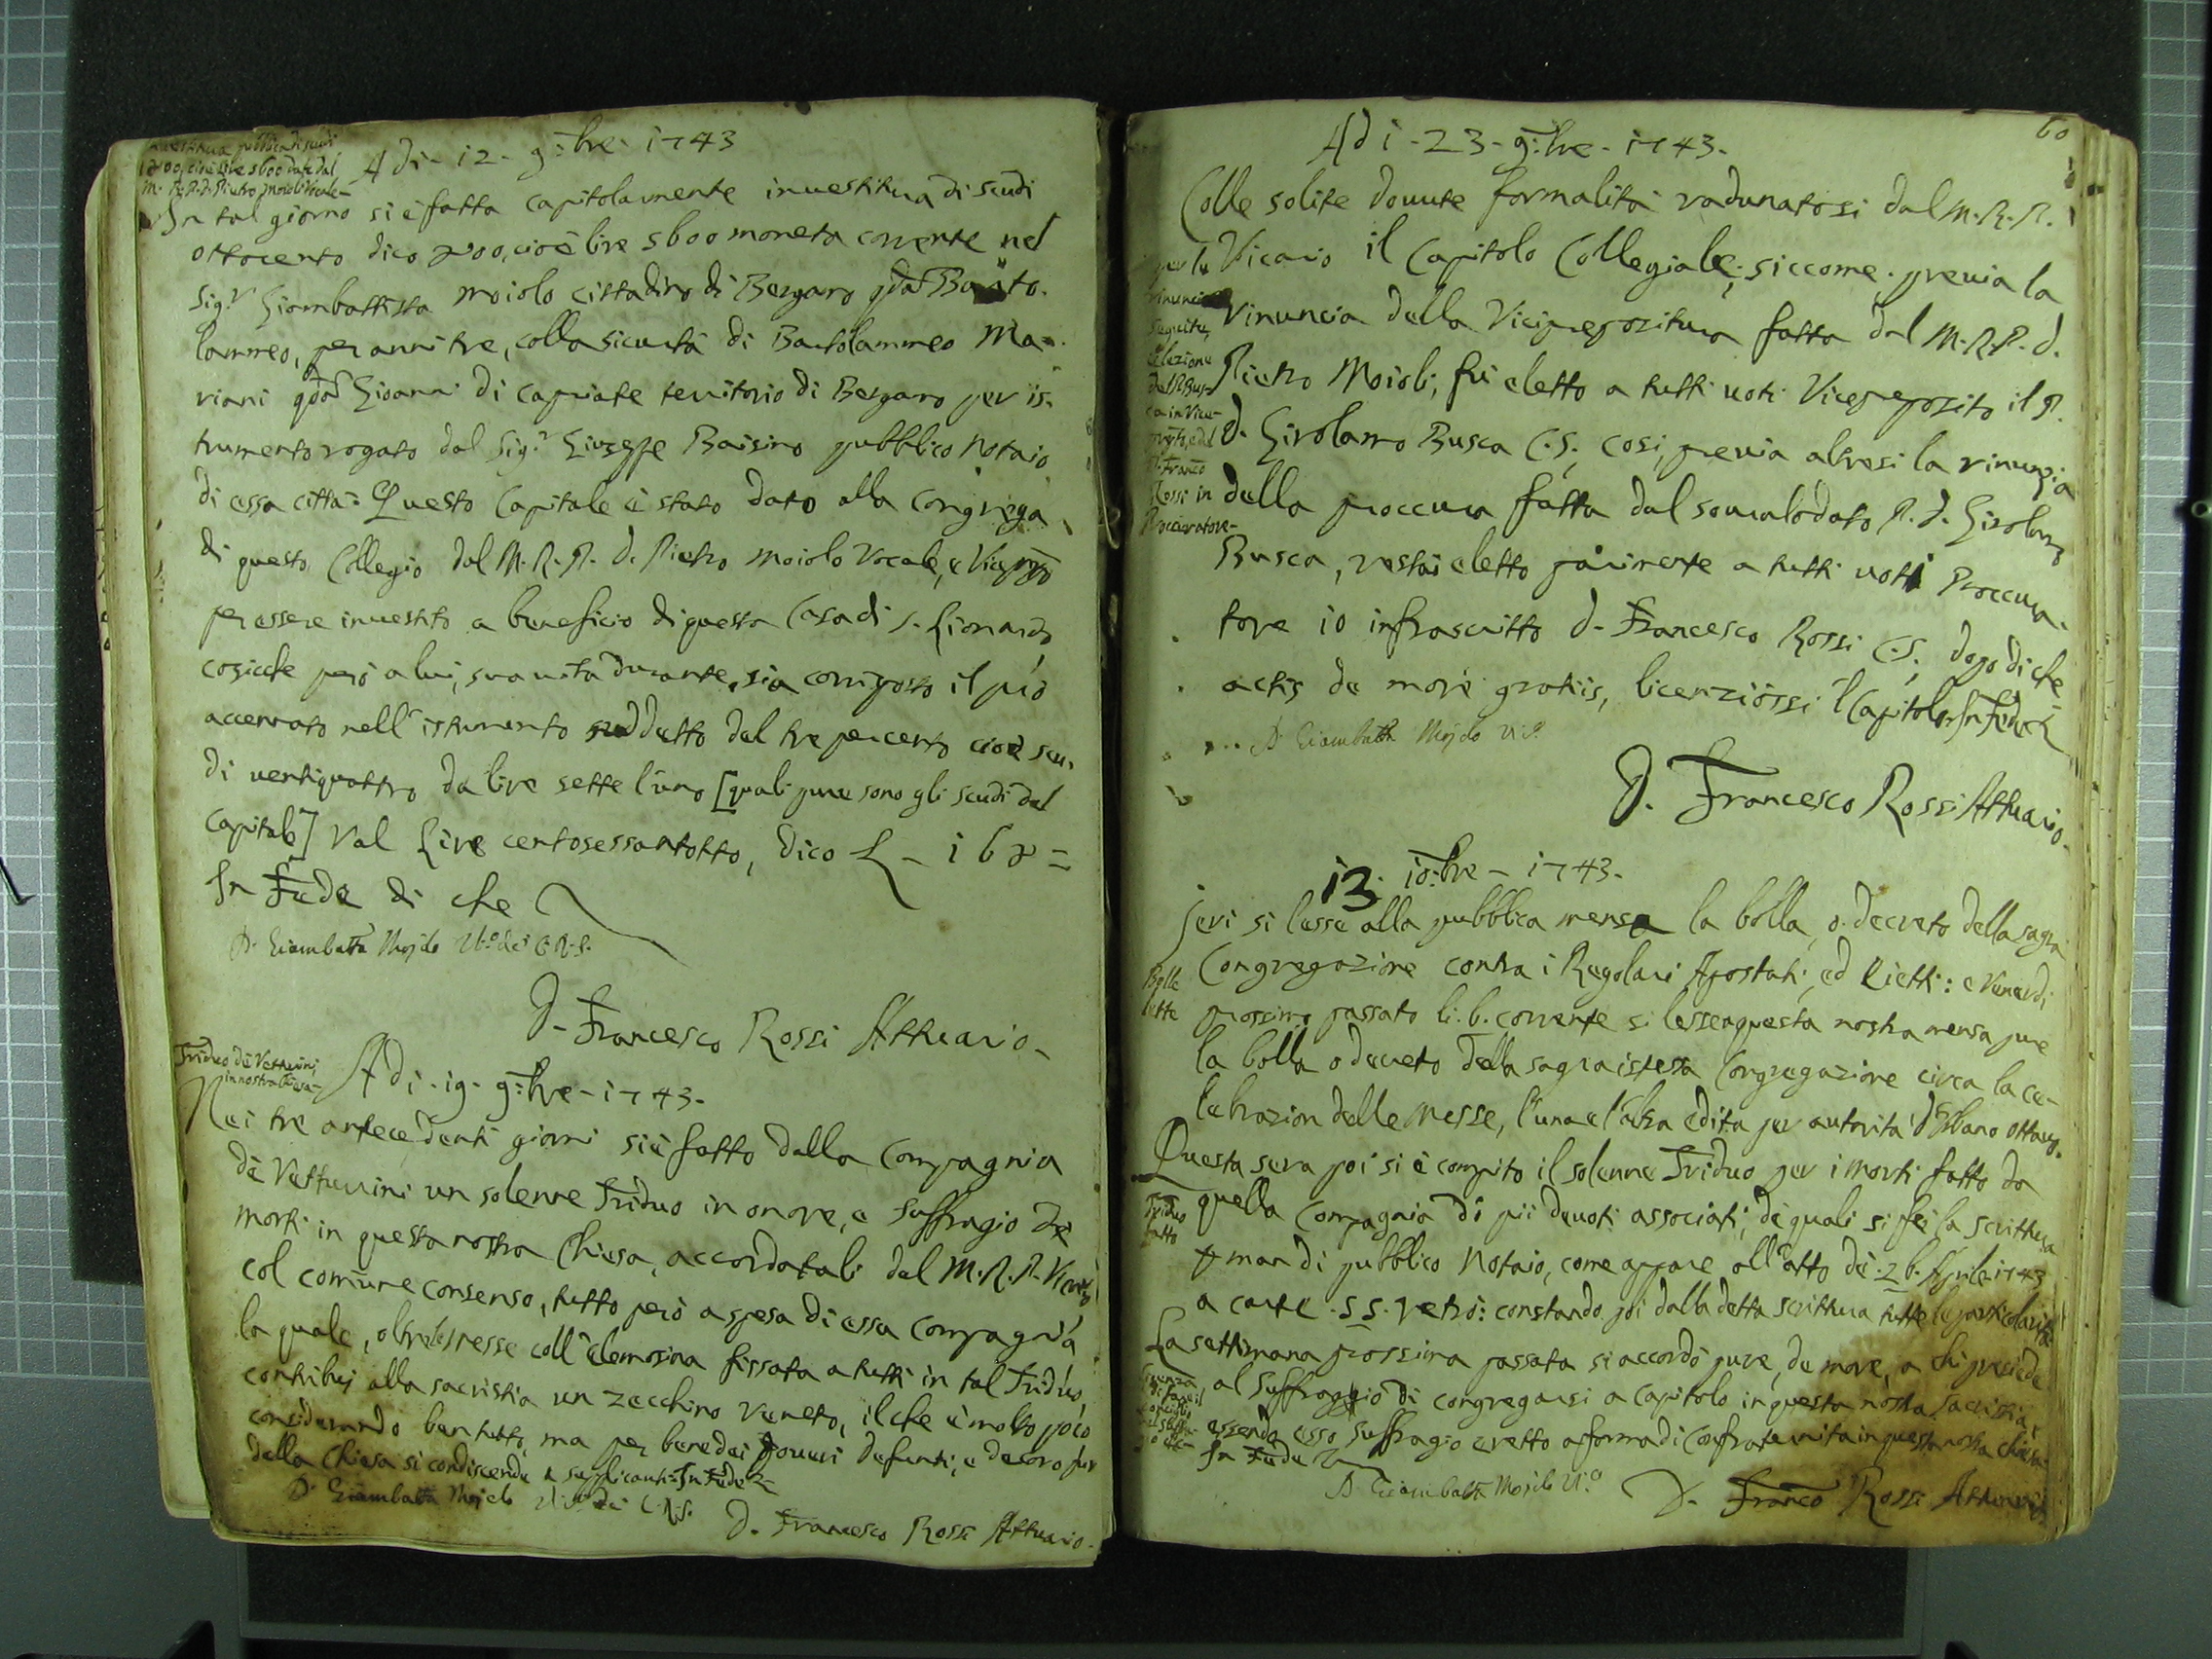 A di - 12 - 9:bre - 1743
800, cioè lire 5600 date dal
M. R. P. D. Pietro Moioli Vocale-
In tal giorno si è fatta capitolarmente investitura di scudi
ottocento dico 800, cioè lire 5600 moneta corrente nel
Sig.r Giambattista Moiolo cittadino di Bergamo qdam Barto.
lammeo, per anni tre, colla sicurtà di Bartolammeo Ma-
riani qdam Gioanni di Capriate territorio di Bergamo per is-
trumento rogato dal Sig.r Giuseppe Baisino pubblico Notaio
di essa città: Questo Capitale è stato dato alla Congrega
di questo Collegio dal M. R. P. d. Pietro Moiolo Vocale, e Vicepp.to
per essere investito a beneficio di questa Casa di S. Lionardo,
cosicche però a lui, sua vita durante, sia corrisposto il prò
accennato nell'istrumento suddetto del tre percento cioè scu-
di ventiquattro da lire sette l'uno [quali pure sono gli scudi del
Capitale] Val Lire centosessantotto, dico L - 168 =
In Fede di che
D. Giambatta Mojolo V.o de' C.R.S.
D. Francesco Rossi Attuario-
Triduo de' Vetturini
in nostra Chiesa-
A di - 19 - 9:bre - 1743.
Nei tre antecedenti giorni si è fatto dalla Compagnia
de' Vetturini un solenne Triduo in onore, e suffragio de'
morti in questa nostra Chiesa, accordatali dal M. R. P. Vicario
col comune consenso, tutto però a spesa di essa Compagnia
la quale, oltre le messe coll'elemosina fissata a tutti in tal Triduo,
contribuì alla sacristia un zecchino Veneto, il che è molto poco
considerando ben tutto, ma per bene dei poveri defunti, e decoro pur
della Chiesa si condiscende a supplicanti: In Fede
D. Giambatta Mojolo V.o de' C.R.S.
D. Francesco Rossi Attuario.
60
A di - 23 - 9:bre - 1743.
Colle solite dovute formalità radunatosi dal M. R. P.
Vicario il Capitolo Collegiale; siccome, previa la
rinuncia della Vicepropositura fatta dal M. R. P. d.
Pietro Moioli, fù eletto a tutti voti Viceproposito il P.
d. Girolamo Busca C.S; così, previa altresì la rinunzia
della proccura fatta dal sovralodato P. d. Girolamo
Busca, restai eletto parimente a tutti voti Proccura-
tore io infrascritto d. Francesco Rossi C.S. dopo di che
actis de more gratiis, licenziossi 'l Capitolo: In Fede
elezione
del P. Bus-
ca in Vice-
P. Franco
Rossi in
Proccuratore-
D. Giambatta Mojolo V.o
D. Francesco Rossi Attuario.
13. 10:bre - 1743.
Jeri si lesse alla pubblica mensa la bolla, o decreto della sagra
Congregazione contra i Regolari Apostati, ed Eietti: e Venerdi
prossimo passato li. 6. corrente si lesse a questa nostra mensa pure
la bolla o decreto della sagra istessa Congregazione circa la ce-
lebrazion delle Messe, l'una e l'altra edita per autorità d'Urbano Ottavo.
Bolle
lette
Questa sera poi si è compito il solenne Triduo per i Morti fatto da
quella Compagnia di più devoti associati, de quali si fè la scrittura
per man di pubblico Notaio, come appare all'atto de' 26. Aprile 1743
a carte. 55. retrò: constando poi dalla detta scrittura tutte le particolarità
Triduo
fatto
La settimana prossima passata si accordò pure, de more, a chi presiede
al suffraggio di congregarsi a Capitolo in questa nostra sacristia,
essendo esso suffragio eretto a forma di Confraternita in questa nostra chiesa.
In Fede
D. Giambatta Mojolo V.o
D. Franco Rossi Attuario